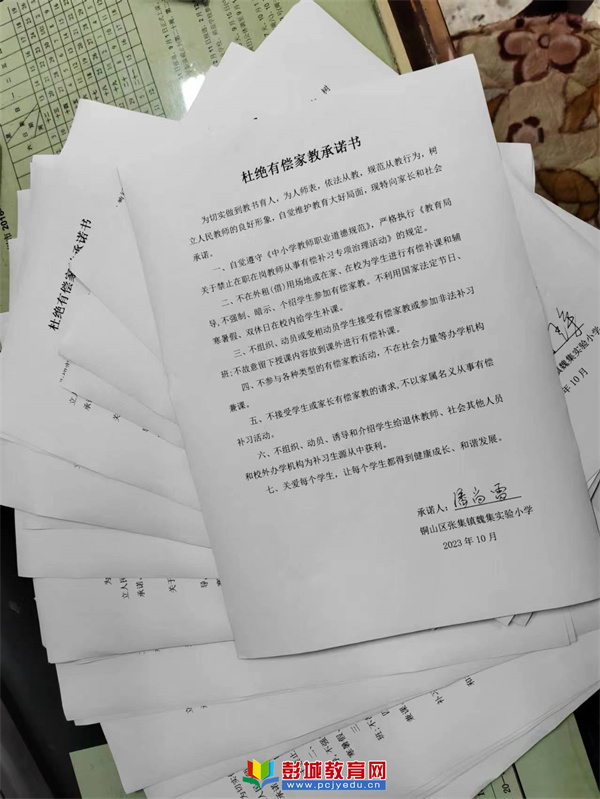 杜绝有偿家教承诺书
为切实做到教书育人，为人师表，依法从教，规范从教行为，树
立人民教师的良好形象，自觉维护教育大好局面，现特向家长和社会
承诺。
一、自觉遵守《中小学教师职业道德规范》，严格执行《教育局
关于禁止在职在岗教师从事有偿补习专项治理活动》的规定。
二、不在外租(借)用场地或在家、在校为学生进行有偿补课和辅
导,不强制、暗示、个绍学生参加有偿家教。不利用国家法定节日、
寒暑假、双休日在校内给学生补课。
三、不组织、动员或变相动员学生接受有偿家教或参加非法补习
班;不故意留下授课内容放到课外进行有偿补课。
四、不参与各种类型的有偿家教活动，不在社会力量等办学机构
兼课。
五、不接受学生或家长有偿家教的请求,不以家属名义从事有偿
补习活动。
六、不组织、动员、诱导和介绍学生给退休教师、社会其他人员
和校外办学机构为补习生源从中获利。
七、关爱每个学生，让每个学生都得到健康成长、和谐发展。
承诺人：潘尚雪
铜山区张集镇魏集实验小学
2023 年 10 月
杜绝有偿家教承诺书
彭城教育网
www.pcjyedu.cn